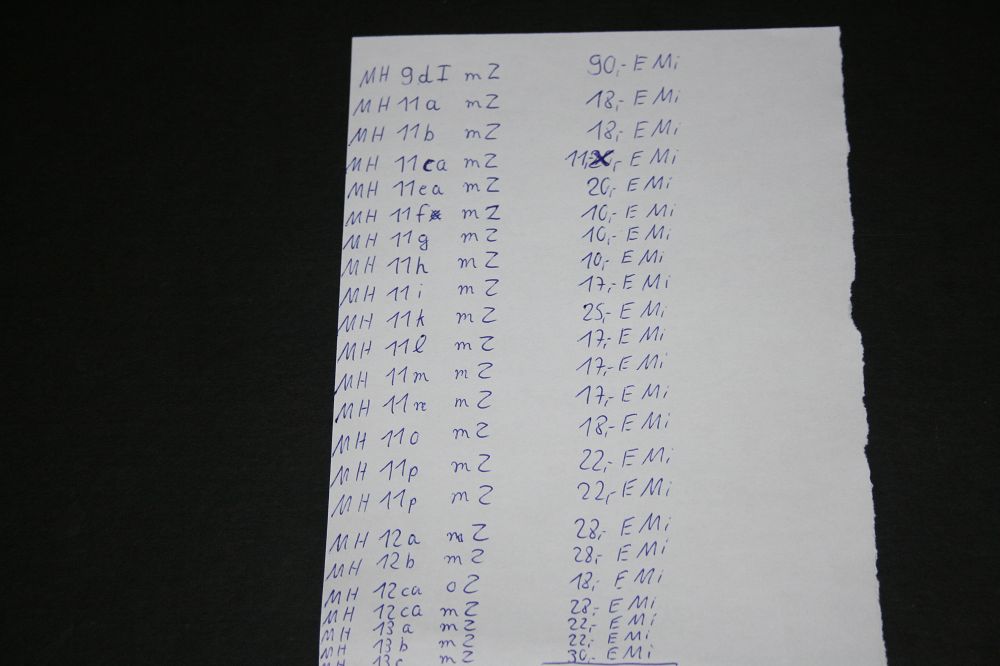 MH 9dI mZ 90,- E Mi
MH 11a mZ 18,- E Mi
MH 11b mZ 18,- E Mi
MH 11ca mZ 11,- E Mi
MH 11ea mZ 20,- E Mi
MH 11f mZ 10,- E Mi
MH 11g mZ 10,- E Mi
MH 11h mZ 10,- E Mi
MH 11i mZ 17,- E Mi
MH 11k mZ 25,- E Mi
MH 11l mZ 17,- E Mi
MH 11m mZ 17,- E Mi
MH 11n mZ 17,- E Mi
MH 11o mZ 18,- E Mi
MH 11p mZ 22,- E Mi
MH 11p mZ 22,- E Mi
MH 12a mZ 28,- E Mi
MH 12b mZ 28,- E Mi
MH 12ca oZ 18,- E Mi
MH 12ca mZ 28,- E Mi
MH 13a mZ 22,- E Mi
MH 13b mZ 22,- E Mi
MH 13c mZ 30,- E Mi